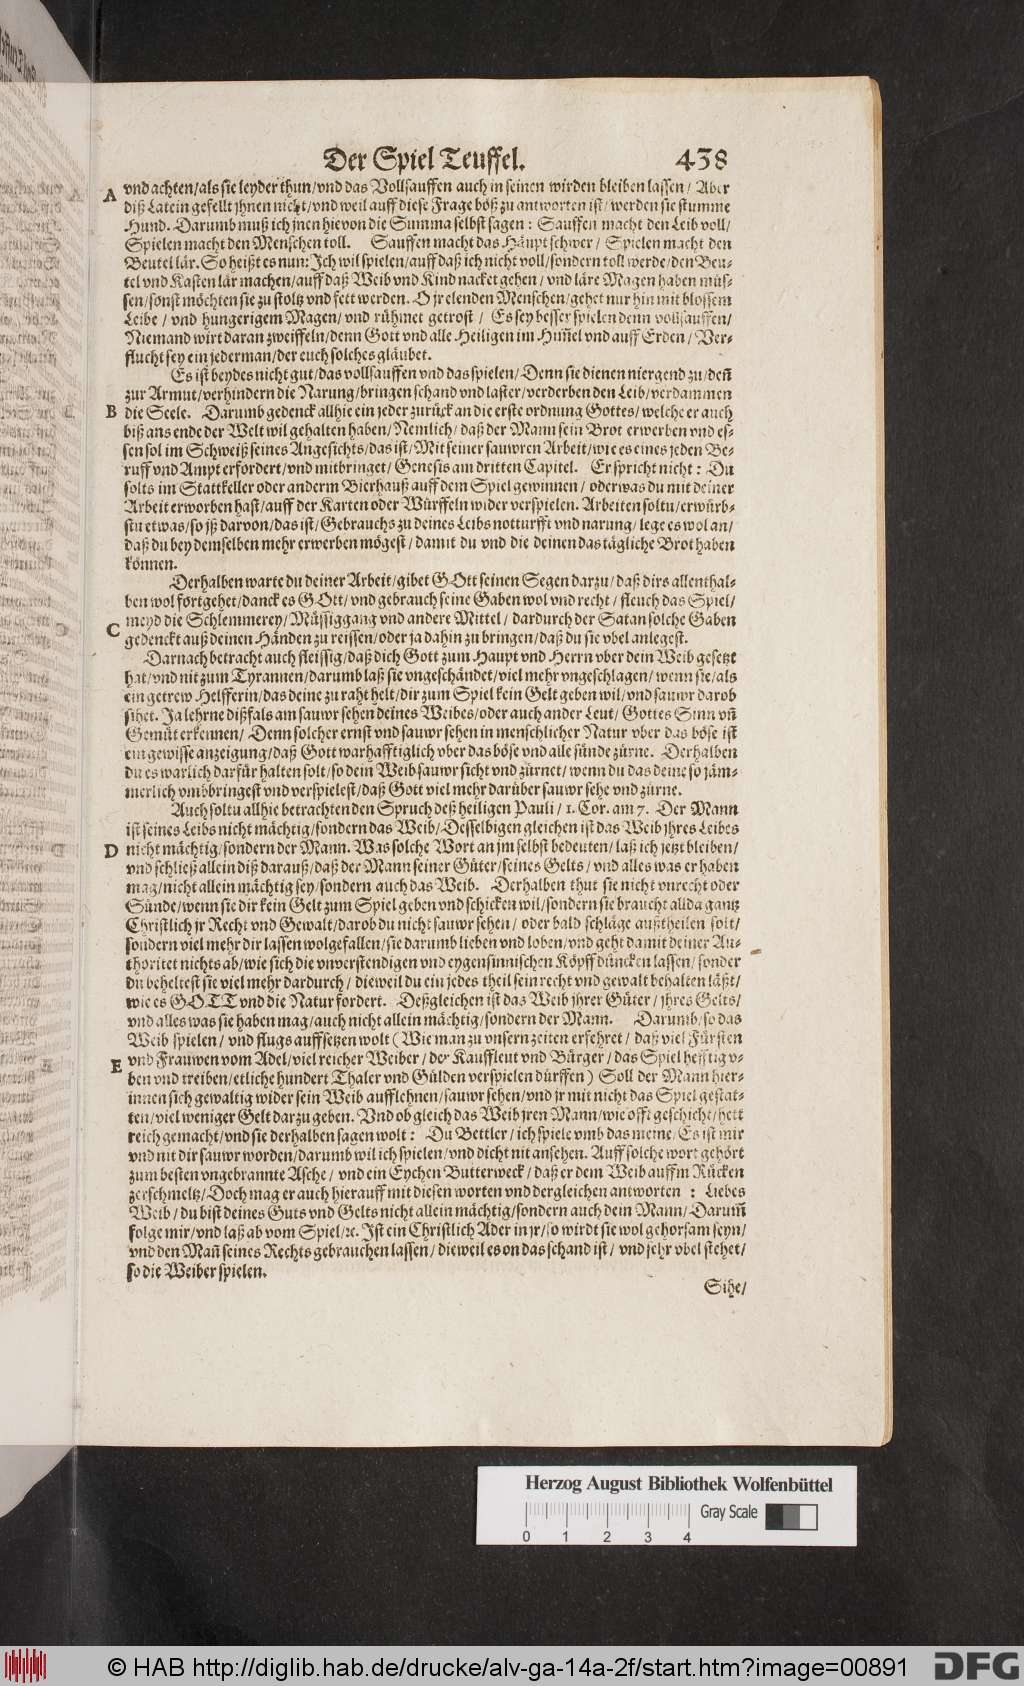 Der Spiel Teuffel. 438
A vnd achten/als sie leyder thun/vnd das Vollsauffen auch in seinen wirden bleiben lassen/ Aber
diß Latein gefellt jhnen nicht/vnd weil auff diese Frage böß zu antworten ist/ werden sie stumme
Hund. Darumb muß ich jnen hievon die Summa selbst sagen: Sauffen macht den Leib voll/
Spielen macht den Menschen toll. Sauffen macht das Häupt schwer/ Spielen macht den
Beutel lär. So heißt es nun: Ich wil spielen/auff daß ich nicht voll/sondern toll werde/den Beu-
tel vnd Kasten lär machen/auff daß Weib vnd Kind nacket gehen/ vnd läre Magen haben müs-
sen/sonst möchten sie zu stoltz vnd fett werden. O jr elenden Menschen/gehet nur hin mit blossem
Leibe/ vnd hungerigem Magen/ vnd rühmet getrost/ Es sey besser spielen denn vollsauffen/
Niemand wirt daran zweiffeln/denn Gott vnd alle Heiligen im Him̃el vnd auff Erden/ Ver-
flucht sey ein jederman/der euch solches gläubet.
Es ist beydes nicht gut/das vollsauffen vnd das spielen/ Denn sie dienen niergend zu/den̄
zur Armut/verhindern die Narung/bringen schand vnd laster/verderben den Leib/verdammen
B die Seele. Darumb gedenck allhie ein jeder zurück an die erste ordnung Gottes/ welche er auch
biß ans ende der Welt wil gehalten haben/Nemlich/ daß der Mann sein Brot erwerben vnd es-
sen sol im Schweiß seines Angesichts/das ist/Mit seiner sauwren Arbeit/wie es eines jeden Be-
ruff vnd Ampt erfordert/vnd mitbringet/ Genesis am dritten Capitel. Er spricht nicht: Du
solts im Stattkeller oder anderm Bierhauß auff dem Spiel gewinnen/ oder was du mit deiner
Arbeit erworben hast/auff der Karten oder Würffeln wider verspielen. Arbeiten soltu/erwürb-
stu etwas/so iß darvon/das ist/Gebrauchs zu deines Leibs notturfft vnd narung/lege es wol an/
daß du bey demselben mehr erwerben mögest/damit du vnd die deinen das tägliche Brot haben
können.
Derhalben warte du deiner Arbeit/gibet GOtt seinen Segen darzu/daß dirs allenthal-
ben wol fortgehet/danck es GOtt/vnd gebrauch seine Gaben wol vnd recht/ fleuch das Spiel/
meyd die Schlemmerey/Müssiggang vnd andere Mittel/ dardurch der Satan solche Gaben
C gedenckt auß deinen Händen zu reissen/oder ja dahin zu bringen/daß du sie vbel anlegest.
Darnach betracht auch fleissig/daß dich Gott zum Haupt vnd Herrn vber dein Weib gesetzt
hat/vnd nit zum Tyrannen/darumb laß sie vngeschändet/viel mehr vngeschlagen/wenn sie/als
ein getrew Helfferin/das deine zu raht helt/dir zum Spiel kein Gelt geben wil/vnd sauwr darob
sihet. Ja lehrne dißfals am sauwr sehen deines Weibes/oder auch ander Leut/ Gottes Sinn vn̄
Gemüt erkennen/ Denn solcher ernst vnd sauwr sehen in menschlicher Natur vber das böse ist
ein gewisse anzeigung/daß Gott warhafftiglich vber das böse vnd alle sünde zürne. Derhalben
du es warlich darfür halten solt/so dein Weib sauwr sicht vnd zürnet/wenn du das deine so jäm-
merlich vmbbringest vnd verspielest/daß Gott viel mehr darüber sauwr sehe vnd zürne.
Auch soltu allhie betrachten den Spruch deß heiligen Pauli/ 1. Cor. am 7. Der Mann
ist seines Leibs nicht mächtig/sondern das Weib/Desselbigen gleichen ist das Weib jhres Leibes
D nicht mächtig/sondern der Mann. Was solche Wort an jm selbst bedeuten/ laß ich jetzt bleiben/
vnd schließ allein diß darauß/daß der Mann seiner Güter/seines Gelts/ vnd alles was er haben
mag/nicht allein mächtig sey/sondern auch das Weib. Derhalben thut sie nicht vnrecht oder
Sünde/wenn sie dir kein Gelt zum Spiel geben vnd schicken wil/sondern sie braucht allda gantz
Christlich jr Recht vnd Gewalt/darob du nicht sauwr sehen/ oder bald schläge außtheilen solt/
sondern viel mehr dir lassen wolgefallen/sie darumb lieben vnd loben/vnd geht damit deiner Au-
thoritet nichts ab/wie sich die vnverstendigen vnd eygensinnischen Köpff düncken lassen/sonder
du beheltest sie viel mehr dardurch/ dieweil du ein jedes theil sein recht vnd gewalt behalten läßt/
wie es GOTT vnd die Natur fordert. Deßgleichen ist das Weib jhrer Güter/ jhres Gelts/
vnd alles was sie haben mag/auch nicht allein mächtig/sondern der Mann. Darumb/so das
Weib spielen/ vnd flugs auffsetzen wolt (Wie man zu vnsern zeiten erfehret/ daß viel Fürsten
E vnd Frauwen vom Adel/viel reicher Weiber/ der Kauffleut vnd Bürger/das Spiel hefftig v-
ben vnd treiben/etliche hundert Thaler vnd Gülden verspielen dürffen) Soll der Mann hier-
innen sich gewaltig wider sein Weib aufflehnen/sauwr sehen/vnd jr mit nicht das Spiel gestat-
ten/viel weniger Gelt darzu geben. Vnd ob gleich das Weib jren Mann/wie offt geschicht/hett
reich gemacht/vnd sie derhalben sagen wolt: Du Bettler/ich spiele vmb das meine/Es ist mir
vnd nit dir sauwr worden/darumb wil ich spielen/vnd dich nit ansehen. Auff solche wort gehört
zum besten vngebrannte Asche/ vnd ein Eychen Butterweck/daß er dem Weib auffm Rücken
zerschmeltz/Doch mag er auch hierauff mit diesen worten vnd dergleichen antworten: Liebes
Weib/du bist deines Guts vnd Gelts nicht allein mächtig/sondern auch dein Mann/Darum̄
folge mir/vnd laß ab vom Spiel/ꝛc. Ist ein Christlich Ader in jr/so wirdt sie wol gehorsam seyn/
vnd den Man̄ seines Rechts gebrauchen lassen/dieweil es on das schand ist/ vnd sehr vbel stehet/
so die Weiber spielen.
Sihe/
Herzog August Bibliothek Wolfenbüttel
Gray Scale
0 1 2 3 4
© HAB http://diglib.hab.de/drucke/alv-ga-14a-2f/start.htm?image=00891
DFG